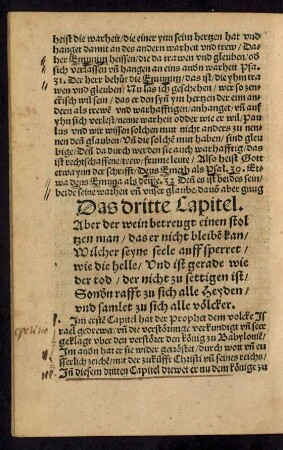 heist die warheit/die einer ynn seim hertzen hat vnd
hanget damit an des andern warheit vnd trew/Da-
her Emunim heissen/die da trawen vnd gleuben/ob
sich verlassen vñ hangen an eins andñ warheit Psa.
31. Der herr behut die Emunim/das ist/die yhm tra
wen vnd gleuben/Nu las ich geschehen/wer so zen-
ckisch wil sein/das er den syn yhm hertzen der eim an-
dern als trewe vnd warhafftigen/anhanget/vñ auff
yhn sich verlest/nenne warheit odder wie er wil/Pau
lus vnd wir wissen solchen mut nicht anders zu nen-
nen deñ glauben/Vñ die solchē mut haben/sind gleu
bige/Deñ da durch werden sie auch warhafftig/das
ist rechtschaffen/trew/frume leute/Also heist Gott
etwa ynn der schrifft/Deus Emeth als Psal. 30. Et-
wa Deus Emuna als Deute. 32 Deñ es ist beides sein/
beide seine warheit vñ vnser glaube/dauō aber gnug
Das dritte Capitel.
Aber der wein betreugt einen stol
tzen man/das er nicht bleibē kan/
Wilcher seyne seele auff sperret/
wie die helle/Vnd ist gerade wie
der tod/der nicht zu settigen ist/
Sonōn rafft zu sich alle Heyden/
vnd samlet zu sich alle völcker.
Im erstē Capitel hat der Prophet dem volcke Js
rael gedrewet/vñ die verstörunge verkundigt vñ seer
geklagt vber den verstörer den könig zu Babylonē/
Im andñ hat er sie wider getröstet/durch wort vñ eu
sserlich zeichē/mit der zukūfft Christi vñ seines reichs/
Jñ diesem dritten Capitel drewet er nu dem könige zu